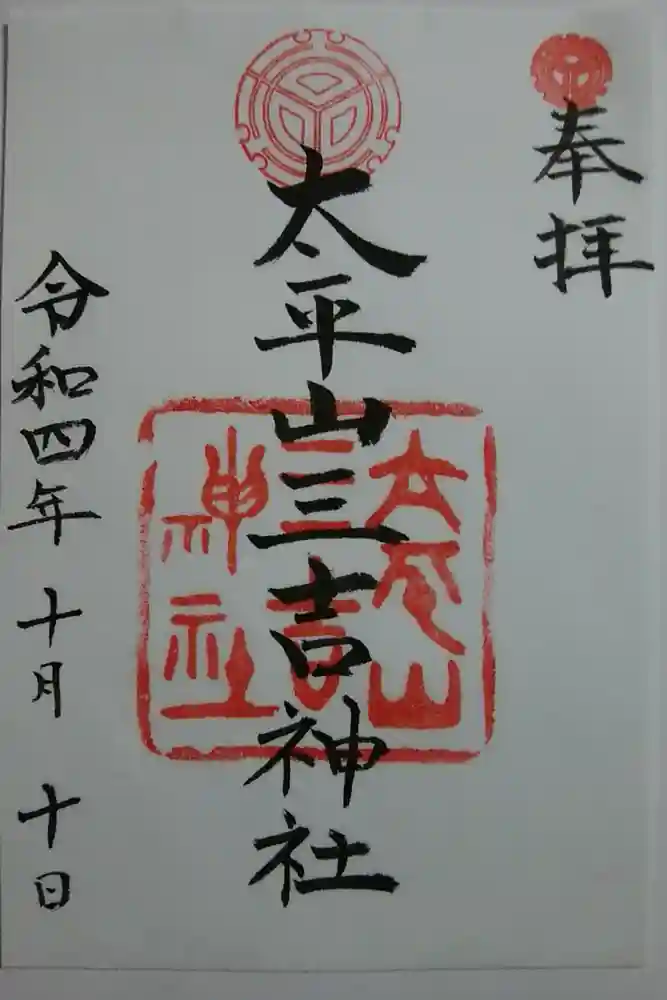 奉拝
太平山三吉神社
太平山
三吉
神社
令和四年十月十日